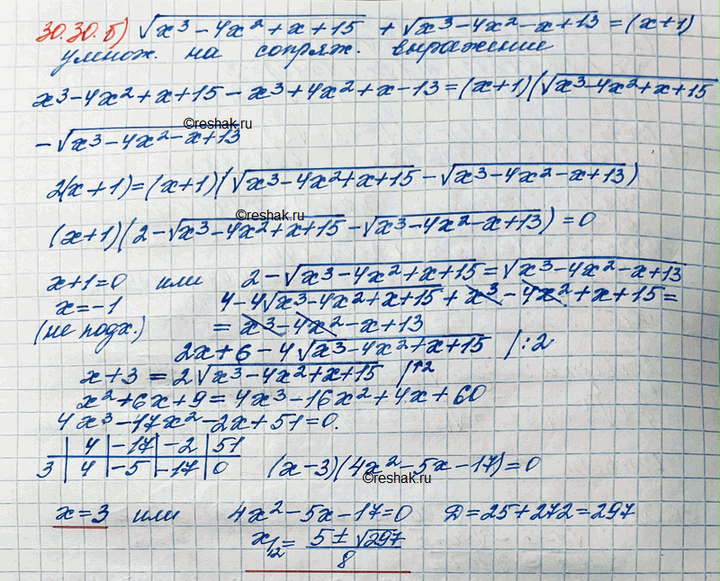 30.30.б) √(x³-4x²+x+15) + √(x³-4x²-x+13) = (x+1)
умнож. на сопряж. выражение
x³-4x²+x+15-x³+4x²+x-13=(x+1)(√(x³-4x²+x+15)
©reshak.ru
-√(x³-4x²-x+13)
2(x+1)=(x+1)(√(x³-4x²+x+15)-√(x³-4x²-x+13))
©reshak.ru
(x+1)(2-√(x³-4x²+x+15)-√(x³-4x²-x+13))=0
x+1=0 или 2-√(x³-4x²+x+15)=√(x³-4x²-x+13)
x=-1 4-4√(x³-4x²+x+15)+x³-4x²+x+15=
(не подх.) =x³-4x²-x+13
2x+6-4√(x³-4x²+x+15) |:2
x+3=2√(x³-4x²+x+15) |↑2
x²+6x+9=4x³-16x²+4x+60
4x³-17x²-2x+51=0.
| 4 | -17 | -2 | 51
3 | 4 | -5 | -17 | 0 (x-3)(4x²-5x-17)=0
©reshak.ru
x=3 или 4x²-5x-17=0 D=25+272=297
x₁,₂=(5±√297)/8